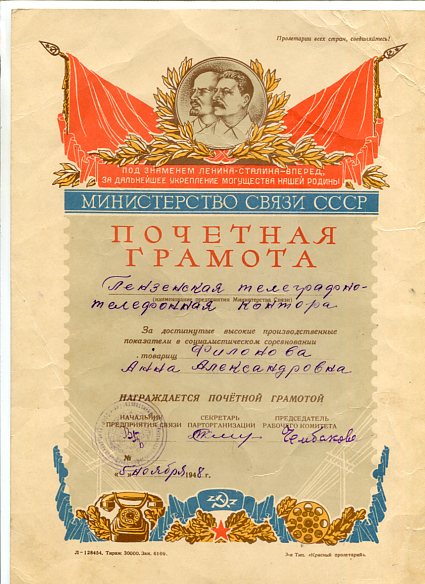 Пролетарии всех стран, соединяйтесь!
ПОД ЗНАМЕНЕМ ЛЕНИНА-СТАЛИНА-ВПЕРЕД,
ЗА ДАЛЬНЕЙШЕЕ УКРЕПЛЕНИЕ МОГУЩЕСТВА НАШЕЙ РОДИНЫ
МИНИСТЕРСТВО СВЯЗИ СССР
ПОЧЕТНАЯ
ГРАМОТА
Пензенская телеграфно-
(наименование предприятия Министерства Связи)
телефонная контора
За достигнутые высокие производственные
показатели в социалистическом соревновании
товарищ Филонова
Анна Александровна
НАГРАЖДАЕТСЯ ПОЧЁТНОЙ ГРАМОТОЙ
НАЧАЛЬНИК СЕКРЕТАРЬ ПРЕДСЕДАТЕЛЬ
ПРЕДПРИЯТИЯ СВЯЗИ ПАРТОРГАНИЗАЦИИ РАБОЧЕГО КОМИТЕТА
№
«5 ноября 1948 г.
Л-128454. Тираж 30000. Зак. 6109. 3-я Тип. «Красный пролетарий».